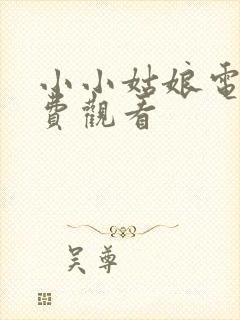 小小姑娘電
費觀看
吴尊